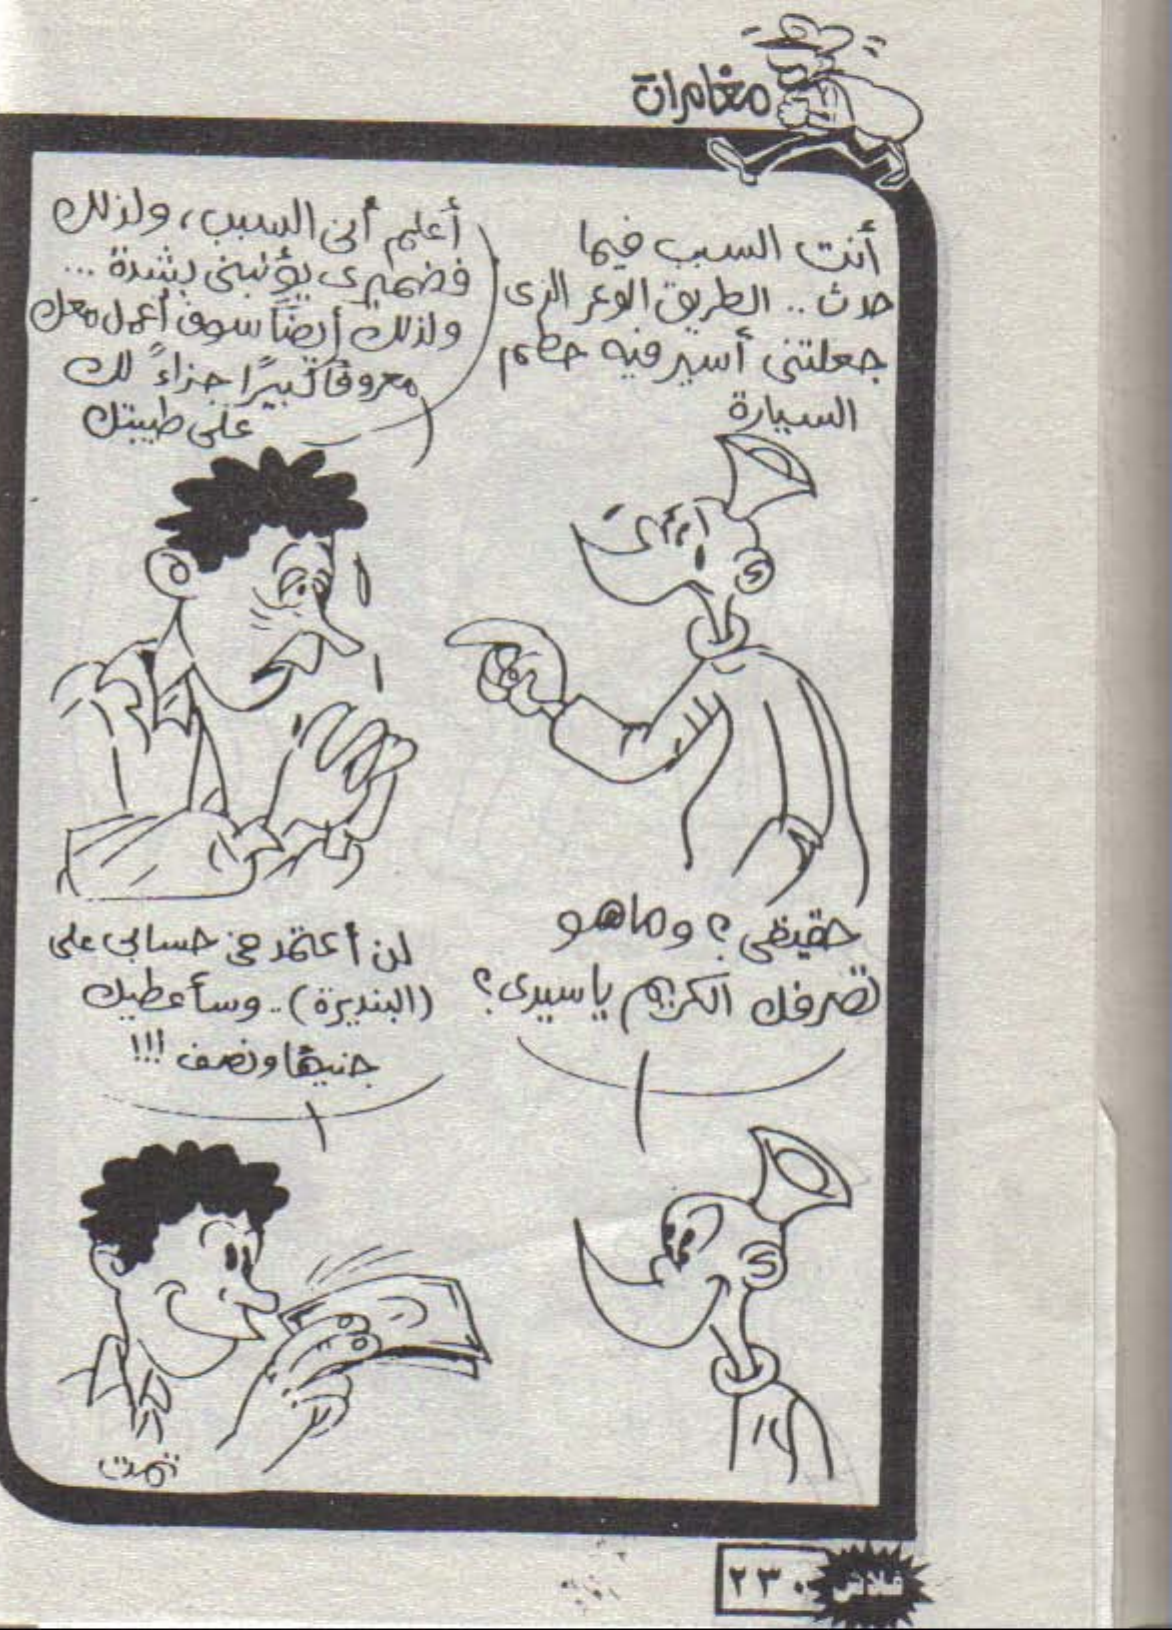 مغامرات
أنت السبب فيما
حدث.. الطريق الوعر الذى
جعلتنى أسير فيه حطم
السيارة
أعلم أنى السبب، ولذلك
فضميرى يؤنبنى بشدة ...
ولذلك أيضًا سوف أعمل معك
معروفًا كبيرًا جزاءً لك
على طيبتك
حقيقى؟ وماهو
تصرفك الكريم ياسيدى؟
لن أعتمد فى حسابى على
(البنديرة).. وسأعطيك
جنيهًا ونصف !!!
تمت
فلاش
٢٣٠